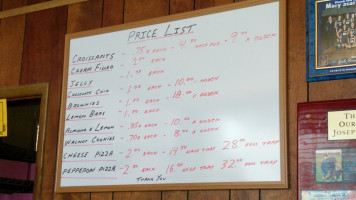 PRICE LIST
CROISSANTS - .75¢ EACH - 4.00 HALF DOZ - 9.00 A DOZEN
CREAM FILLED 2.00 EACH
JELLY - 1.00 EACH
CHOCOLATE CHIP - 1.00 EACH - 10.00 A DOZEN
BROWNIES EACH - 18.00 A DOZEN
LEMON BARS - 1.00 EACH
ALMOND & LEMON - .85¢ EACH - 10.00 A DOZEN
WALNUT COOKIES - .70¢ EACH - 8.00 A DOZEN
CHEESE PIZZA - 2.00 EACH - 14.50 HALF TRAY 28.00 PER TRAY
PEPPERONI PIZZA - 2 EACH - 16.50 HALF TRAY 32.00 PER TRAY
THANK YOU
Mary
TH
OUR
JOSEP